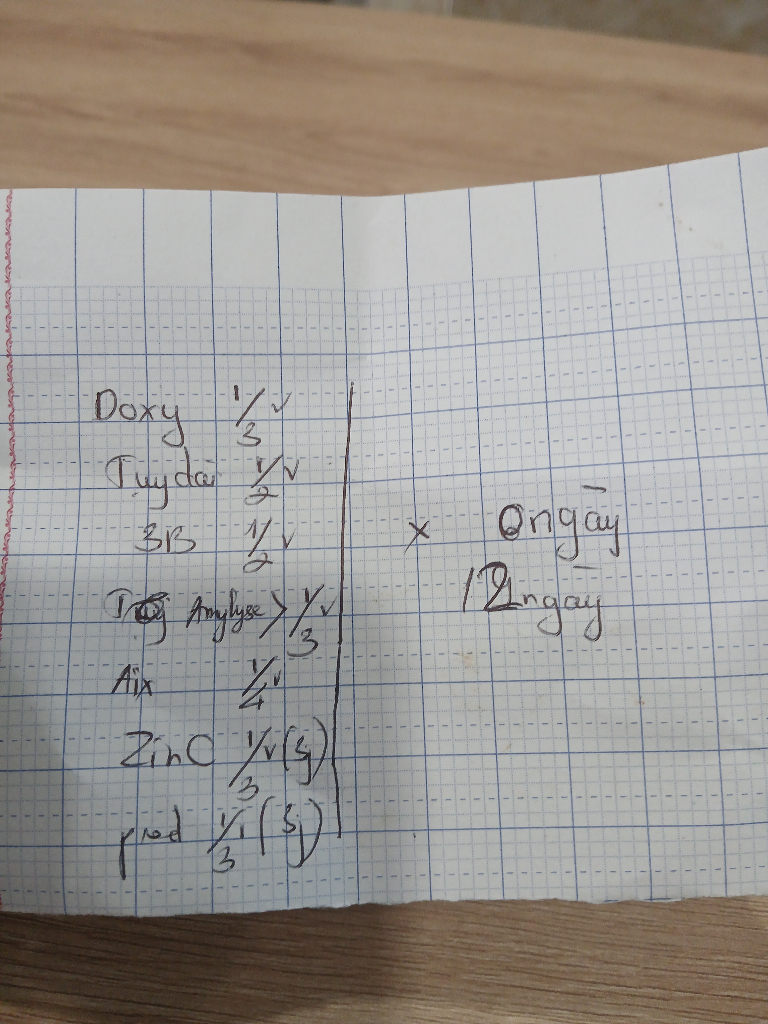 Doxy 1/3 v
Tuy dài 1/2 v
3B 1/2 v
Amylyse > 1/3 v
Aix 1/4 v
ZinC 1/3 v (Sg)
pred 1/3 v (Sg)
x ngày
12 ngày